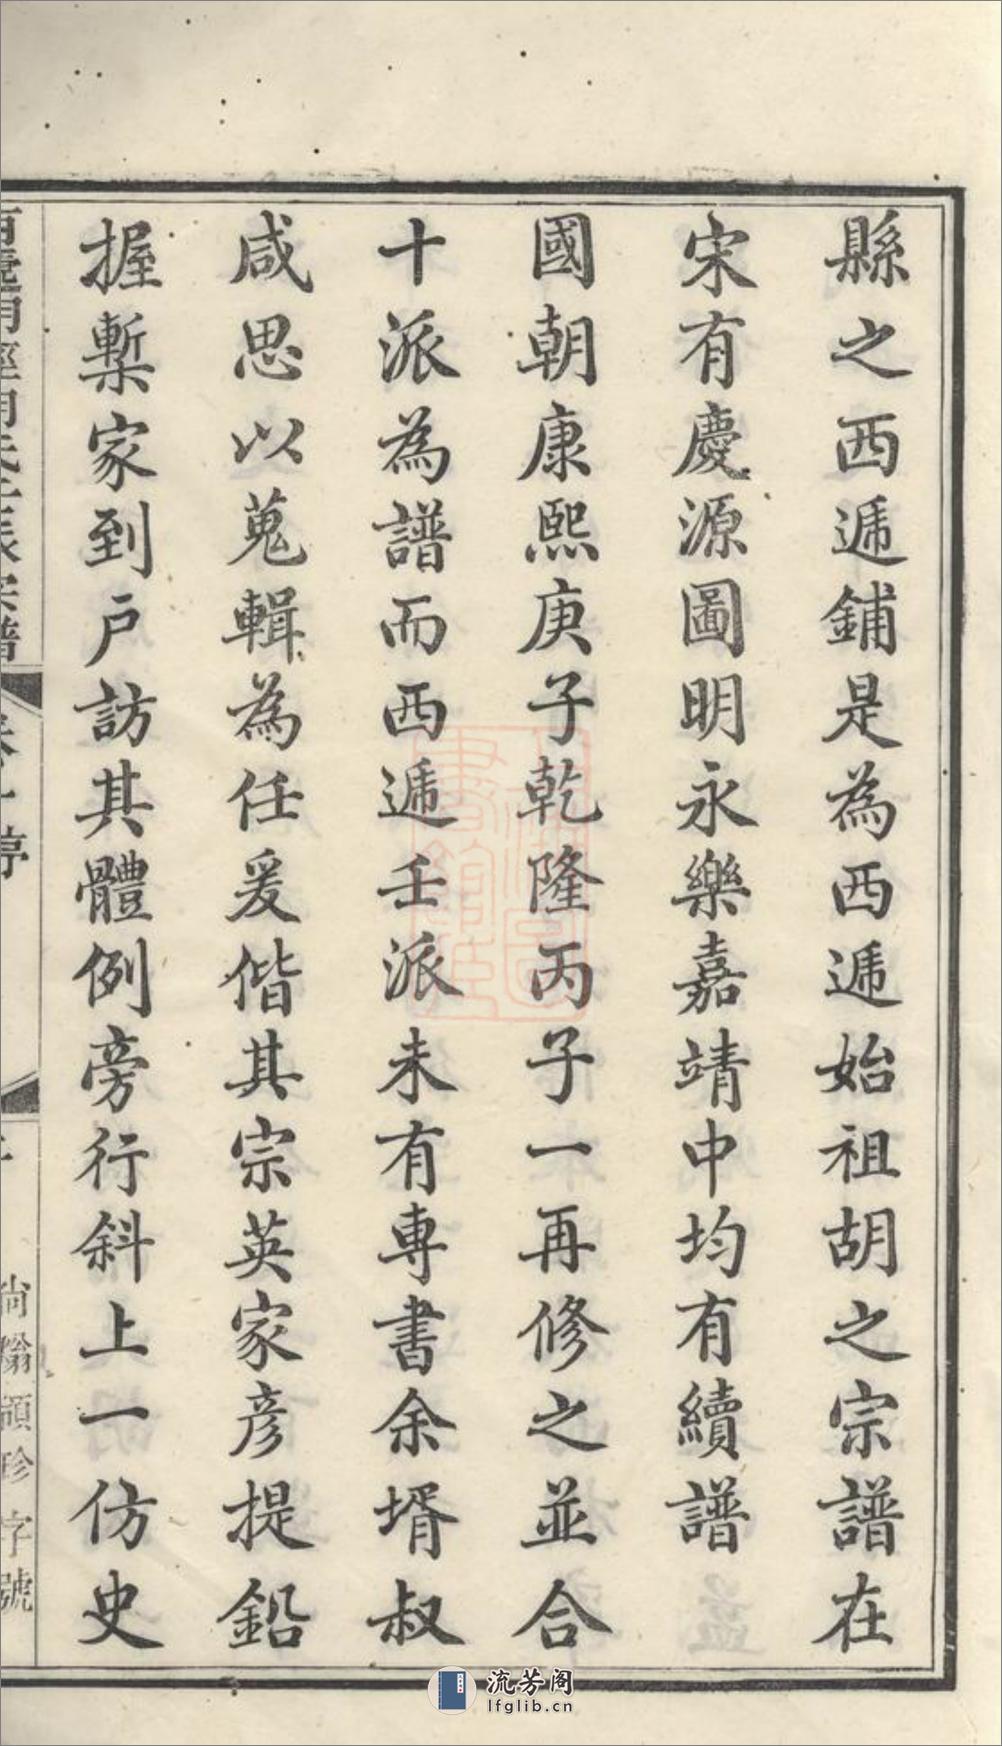 縣之西遞鋪是為西遞始祖胡之宗譜在
宋有慶源圖明永樂嘉靖中均有續譜
國朝康熙庚子乾隆丙子一再修之並合
十派為譜而西遞壬派未有專書余壻叔
咸思以蒐輯為任爰偕其宗英家彥提鉛
握槧家到戶訪其體例旁行斜上一仿史
流芳阁
lfglib.cn